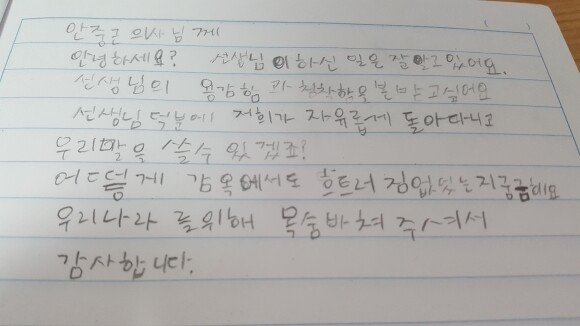 안중근 의사님 께
안녕하세요? 선생님이하신 일은 잘알고있어요.
선생님의 용감함 과침착함을 본받고싶어요
선생님 덕분에 저희가 자유롭게 돌아다니고
우리말을 쓸수 있겠죠?
어떻게 감옥에서도 흐트러 짐없있는지궁금해요
우리나라 를위해 목숨바쳐 주셔서
감사합니다.